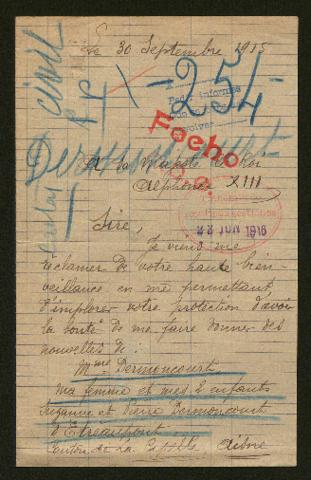 Le 30 Septembre 1915
civil
1-254-
Pedir informes
Focho
Dermoncourt
A Sa Majesté le Roi
Alphonse XIII
Sire,
Je viens me
réclamer de votre haute bien-
veillance en me permettant
d'implorer votre protection d'avoir
la bonté de me faire donner des
nouvelles de :
Mme Dermoncourt
ma femme et mes 2 enfants
Suzanne et Pierre Dermoncourt
d'Etréaupont
Canton de La Capelle Aisne